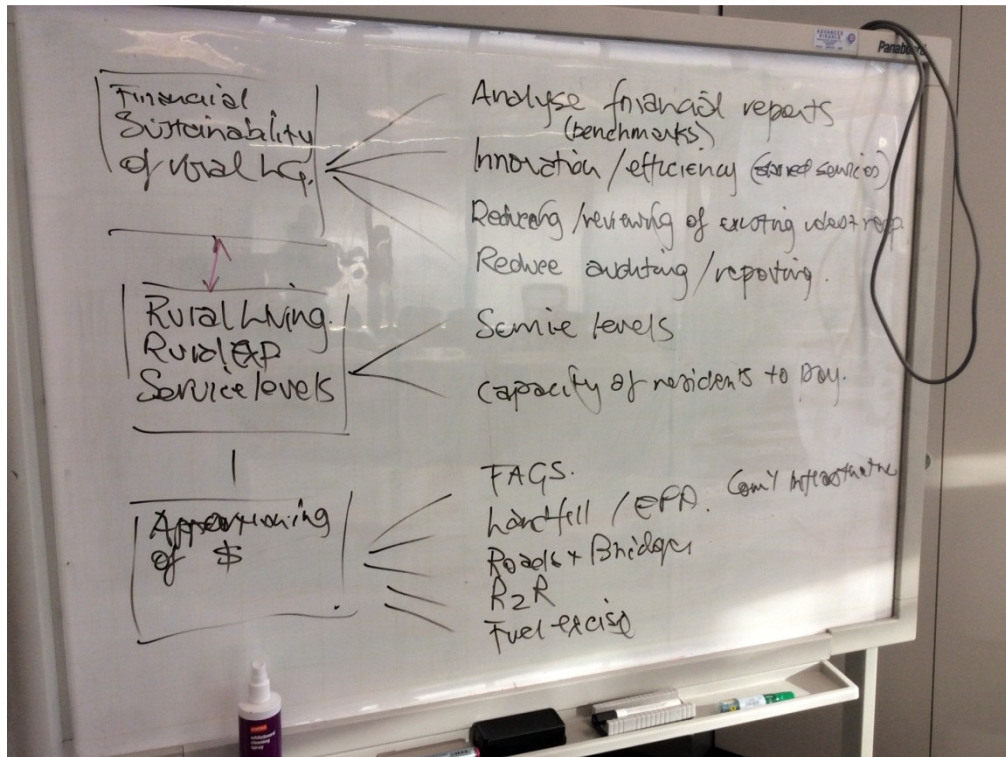 Panaboard
Financial
Sustainability
of rural LG.
Analyse financial reports
(benchmarks)
Innovation / efficiency (shared services)
Reducing / reviewing of existing
Reduce auditing / reporting.
Rural Living.
Rural
Service levels
Service levels
Capacity of residents to pay.
Apportioning
of $
FAGS.
Landfill / EPA. Com'l Infrastructure
Roads + Bridges
R2R
Fuel excise